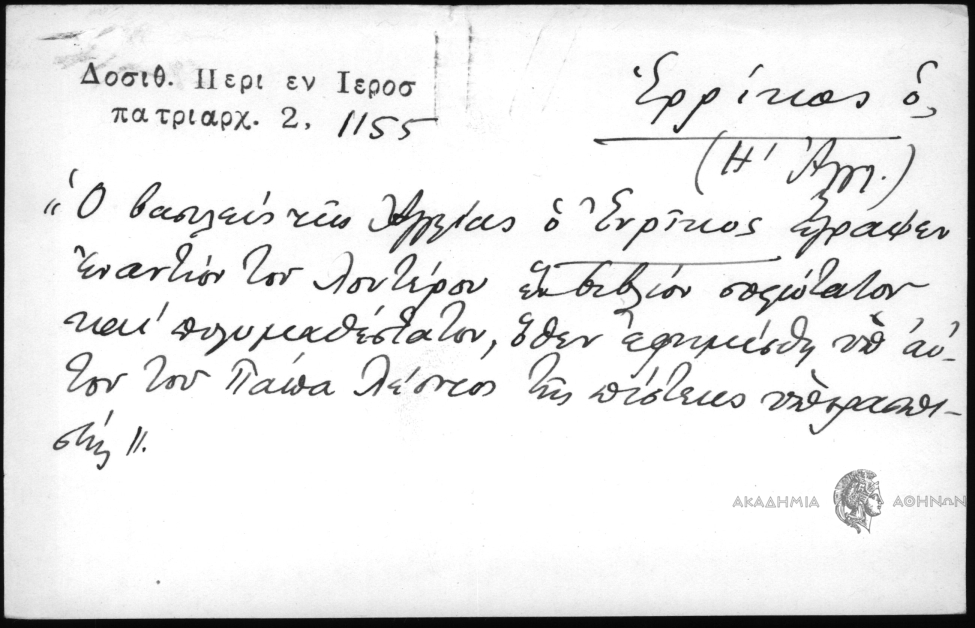 Δοσιθ. Περι εν Ιεροσ
πατριαρχ. 2, 1155
Ἑρρίκος ὁ,
(Η' Ἀγγλ.)
"Ὁ βασιλεὺς τῆς Ἀγγλίας ὁ Ἐνρῖκος ἔγραψεν
ἐναντίον τοῦ Λουτέρου ἓν βιβλίον
καὶ πολυμαθέστατον, ὅθεν ἐφημίσθη ὑπ' αὐ-
τοῦ τοῦ Πάπα Λέοντος τῆς πίστεως ὑπερασπι-
στής".
ΑΚΑΔΗΜΙΑ ΑΘΗΝΩΝ